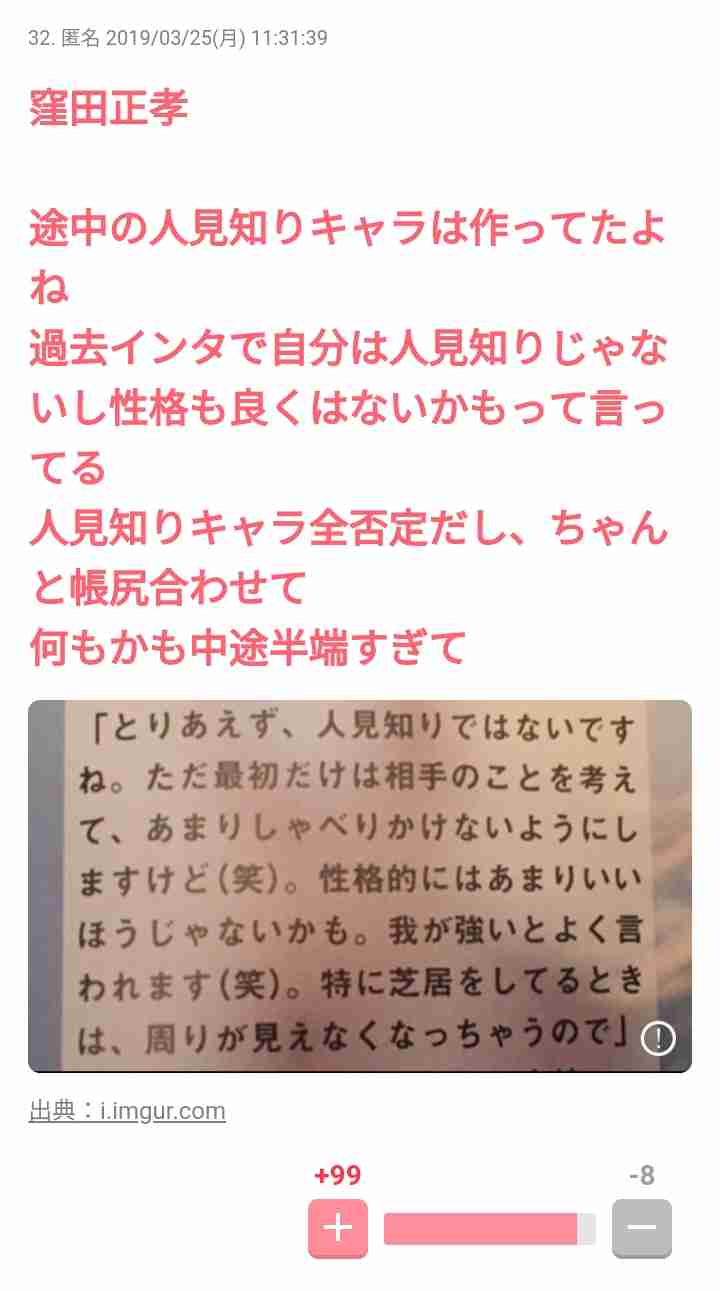 32. 匿名 2019/03/25(月) 11:31:39
窪田正孝
途中の人見知りキャラは作ってたよ
ね
過去インタで自分は人見知りじゃな
いし性格も良くはないかもって言っ
てる
人見知りキャラ全否定だし、ちゃん
と帳尻合わせて
何もかも中途半端すぎて
「とりあえず、人見知りではないです
ね。ただ最初だけは相手のことを考え
て、あまりしゃべりかけないようにし
ますけど(笑)。性格的にはあまりいい
ほうじゃないかも。我が強いとよく言
われます(笑)。特に芝居をしてるとき
は、周りが見えなくなっちゃうので」
出典：i.imgur.com
+99 -8